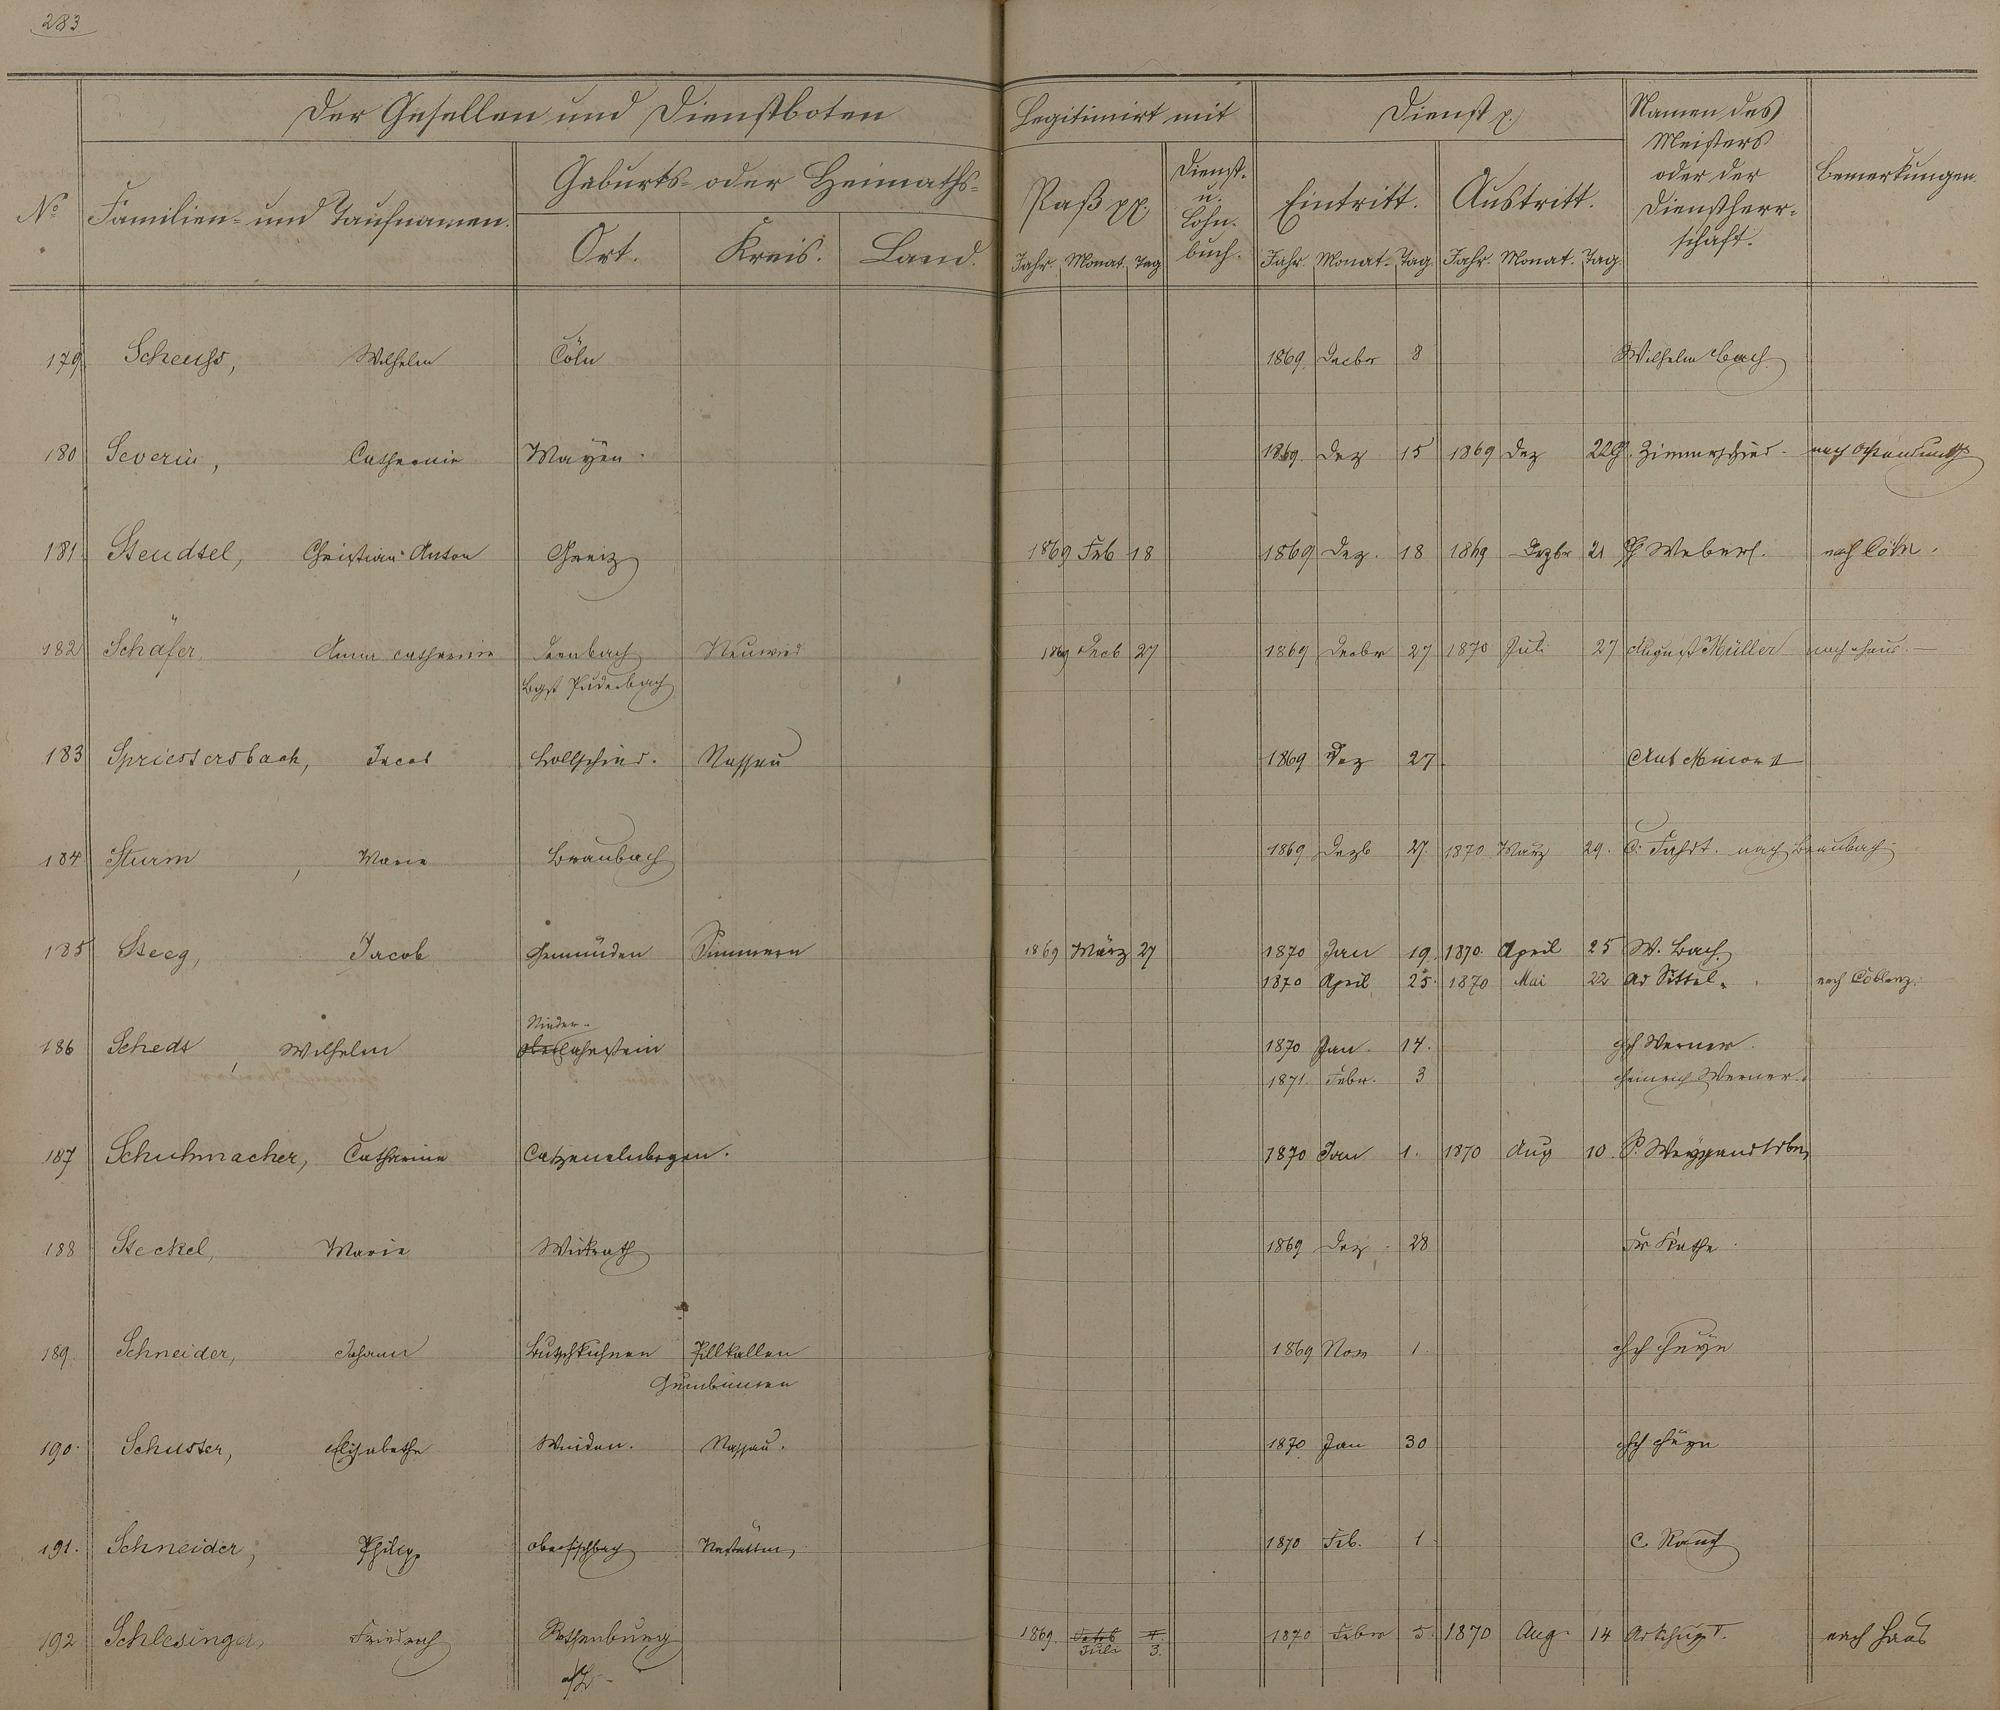 283
Der Gesellen und Dienstboten
Legitimirt mit
Dienst p.
Namen des
Meisters
oder der
Dienstherr-
schaft.
Bemerkungen.
No
Familien- und Taufnamen.
Geburts- oder Heimaths-
Ort. Kreis. Land.
Paß pp.
Dienst-
u.
Lohn-
buch.
Eintritt. Austritt.
Jahr. Monat. Tag Jahr. Monat. Tag. Jahr. Monat. Tag.
179 Wilhelm Cöln 1869 Decbr 8 Wilhelm Bach
180 Severin, Catharine Mayen. 1869. Dez 15 1869 Dez 22 nach
181. Steudtel, Christian Anton Greiz 1869 Feb 18 1869 Dez. 18 1869 Dezbr 21 Weber nach Cöln.
182 Schäfer, Anna Catharine Dernbach Neuwied 1869 27 1869 Decbr 27 1870 Juli 27 August Müller nach Haus. —
Bgst Puderbach
183 Spriestersbach, Jacob Nassau 1869 Dez 27.
184 Sturm, Marie Braubach 1869 Dezb 27. 1870 März 29. C. nach Braubach
185 Steeg, Jacob Gemünden Simmern 1869 März 27 1870 Jan 19. 1870. April 25 W. Bach.
1870 April 25. 1870 Mai 22 Ad Sittel. nach Coblenz.
Nieder-
186 Wilhelm Ober Lahnstein 1870 Jan. 14. Werner.
1871. Febr. 3 Heinrich Werner.
187 Schuhmacher, Catharine Catzenelnbogen. 1870 Jan 1. 1870 Aug 10. P.
188 Steckel, Marie Wickrath 1869 Dez. 28
189. Schneider, Johann Pillkallen 1869 Nov 1
Gumbinnen
190. Schuster, Elisabethe Weiden. Nassau. 1870 Jan 30
191. Schneider, Philip Nastätten, 1870 Feb. 1 C.
192 Schlesinger, Friedrich Rothenburg 1869. 1870 Febr 5. 1870 Aug 14 nach Haus
Juli 3.